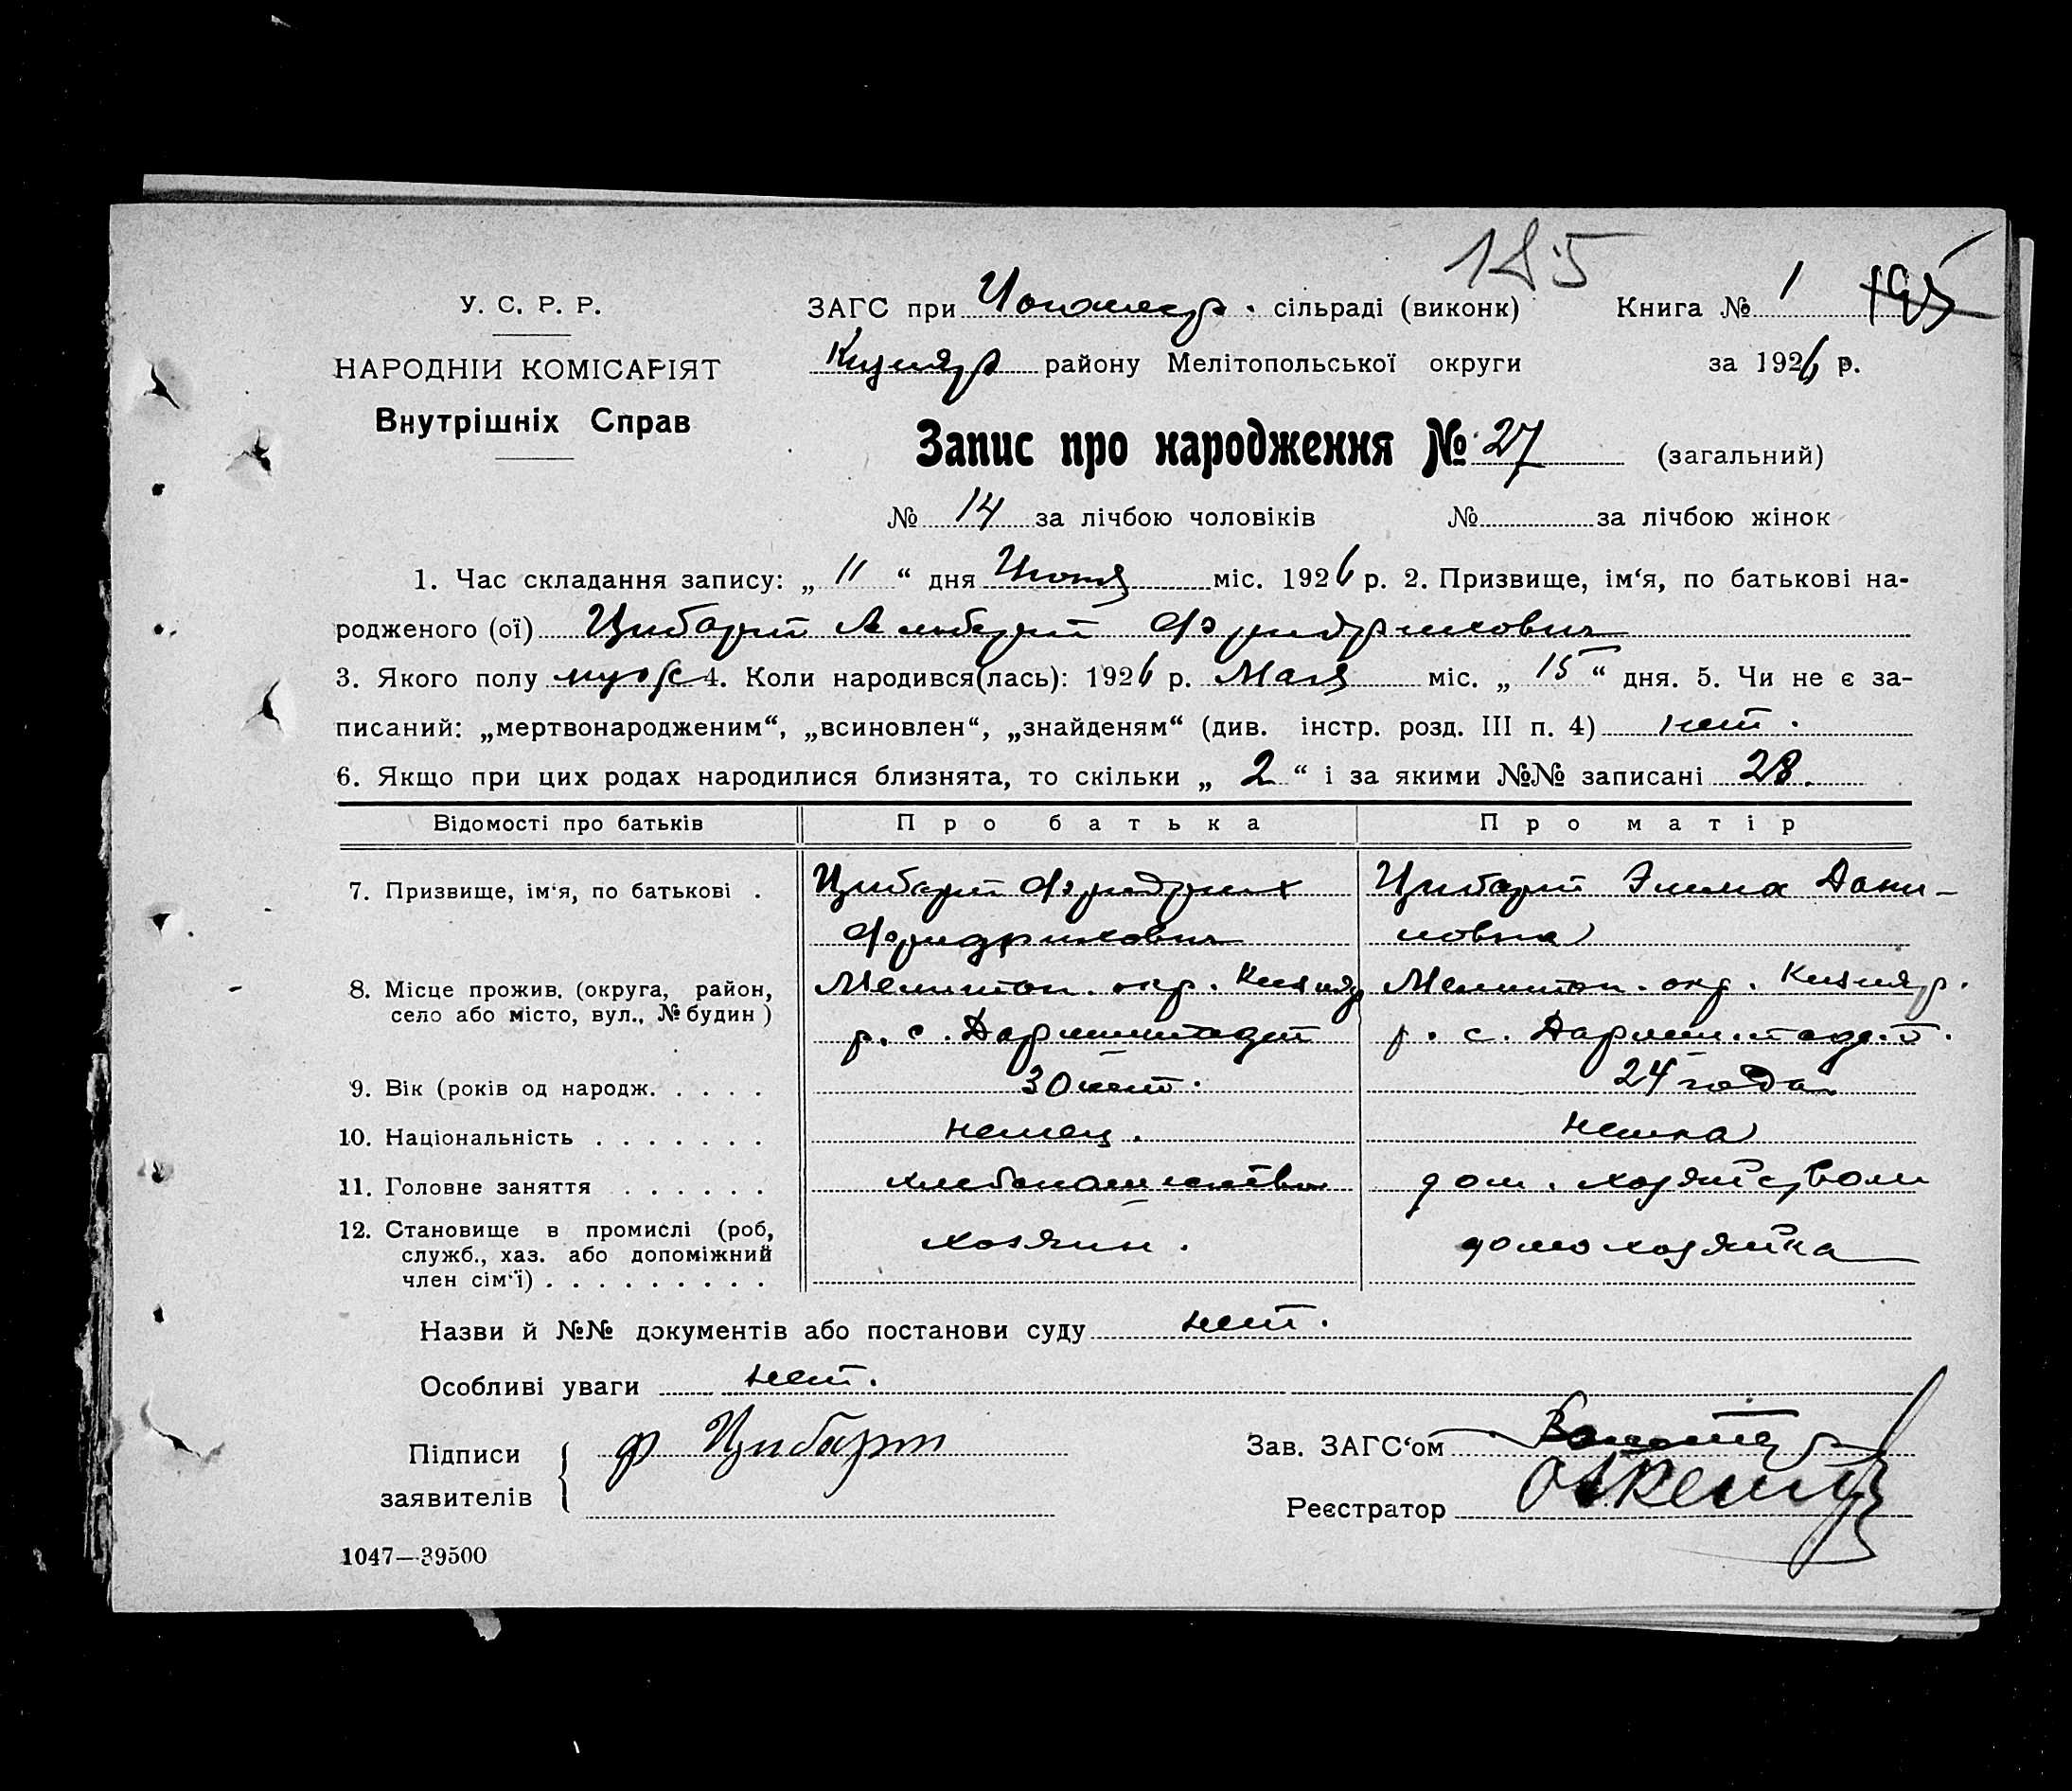 185
У. С. Р. Р.
ЗАГС при сільраді (виконк) Книга № 1 195
НАРОДНІЙ КОМІСАРІЯТ
району Мелітопольської округи за 1926 р.
Внутрішніх Справ
Запис про народження № 27 (загальний)
№ 14 за лічбою чоловіків № за лічбою жінок
1. Час складання запису: „ 11 “ дня Июня міс. 1926 р. 2. Призвище, ім‘я, по батькові на-
родженого (ої) Цибарт Альберт Фридрихович
3. Якого полу муж 4. Коли народився(лась): 1926 р. Мая міс. „ 15 “ дня. 5. Чи не є за-
писаний: „мертвонародженим“, „всиновлен“, „знайденям“ (див. інстр. розд. III п. 4) нет.
6. Якщо при цих родах народилися близнята, то скільки „ 2 “ і за якими №№ записані 28.
Відомості про батьків Про батька Про матір
7. Призвище, ім‘я, по батькові . Цибарт Фридрих Цибарт Эмма Дани-
Фридрихович ловна
8. Місце прожив. (округа, район, Мелитоп. окр. Кизияр Мелитоп. окр. Кизияр.
село або місто, вул., № будин ) р. с. Дармштадт р. с. Дармштадт.
9. Вік (років од народж. . . . . 30 лет. 24 года
10. Національність . . . . . . . немец. немка
11. Головне заняття . . . . . . хлебопашество дом. хозяйством
12. Становище в промислі (роб, хозяин. домохозяйка
служб., хаз. або допоміжний
член сім‘ї) . . . . . . . . .
Назви й №№ документів або постанови суду нет.
Особливі уваги нет.
Підписи Ф Цибарт Зав. ЗАГС‘ом
заявителів Реєстратор
1047—39500